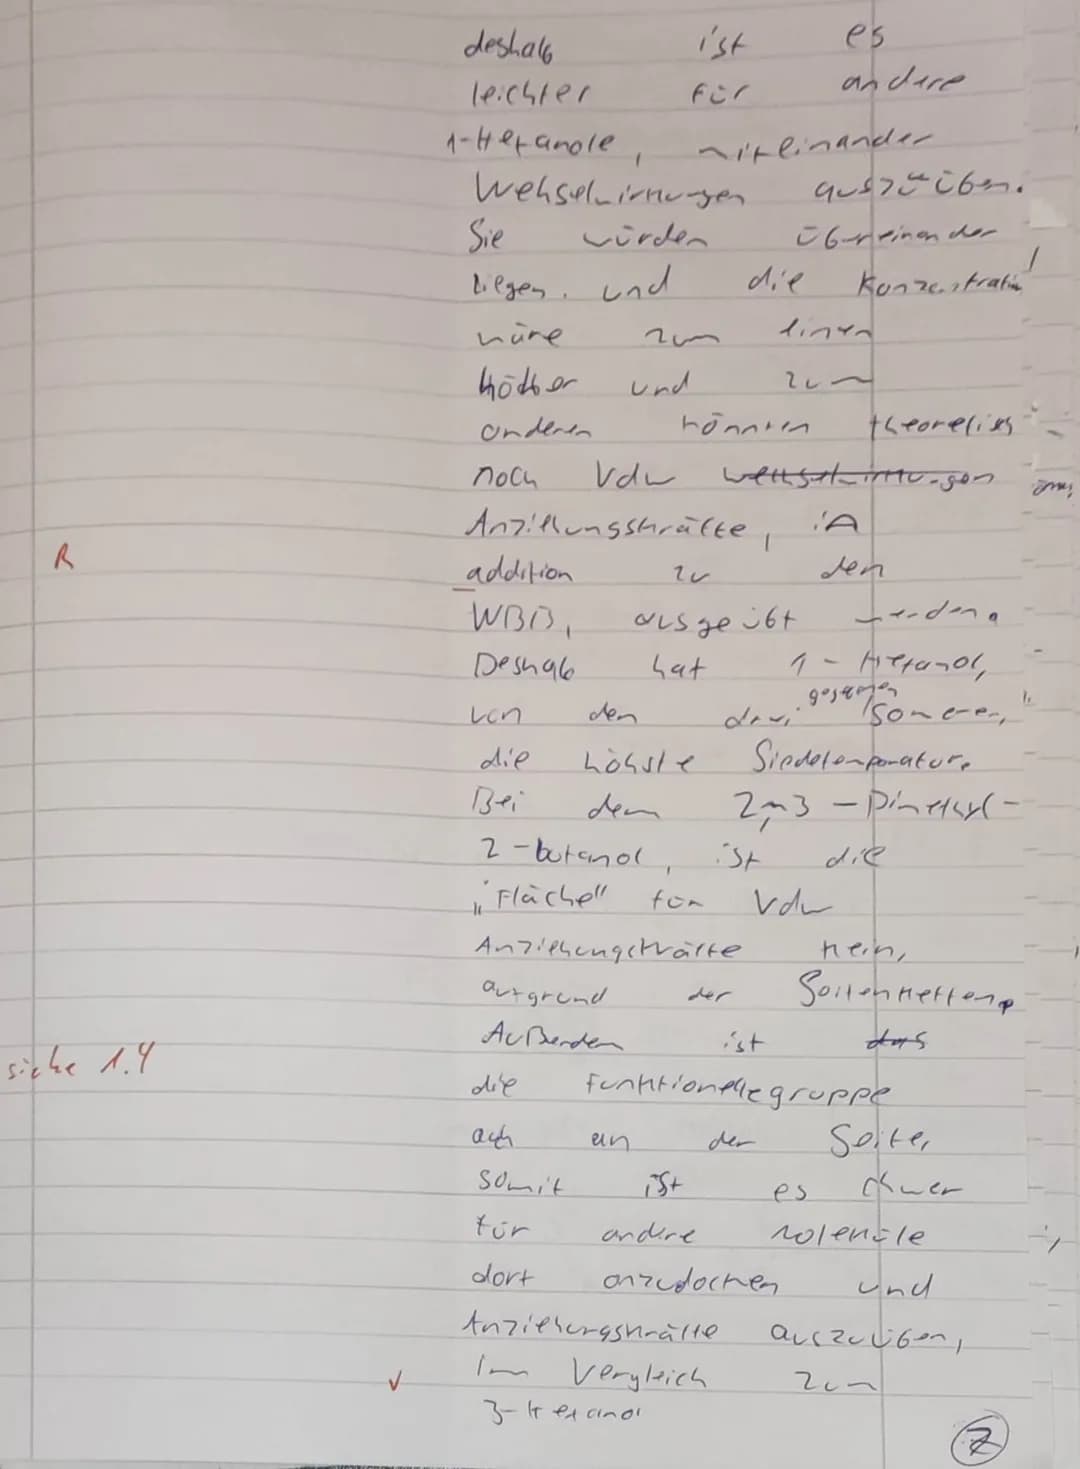 deshalb ist es
leichter für andere
1-Hexanole, miteinander
Wehselwirkungen auszuüben.
Sie würden übereinander
liegen. und die Konzentration
wäre zum einen
höher und zum
anderen könnten theoretisch
noch VdW
Anziehungskräfte, in
R addition zu den
WBB, ausgeübt werden.
Deshalb hat 1-Hexanol,
von den drei gegebenen Isomeren,
die höhste Siedetemperatur.
Bei dem 2,3-Dimethyl-
2-butanol, ist die
„Fläche" für VdW
Anziehungskräfte klein,
aufgrund der Seitenketten.
Außerdem ist das
siehe 1.4
die funktionellegruppe
auch an der Seite,
somit ist es chwer
für andere Moleküle
dort anzudocken und
Anziehungskräfte auszuüben,
Im Vergleich zum
3-Hexanol
2